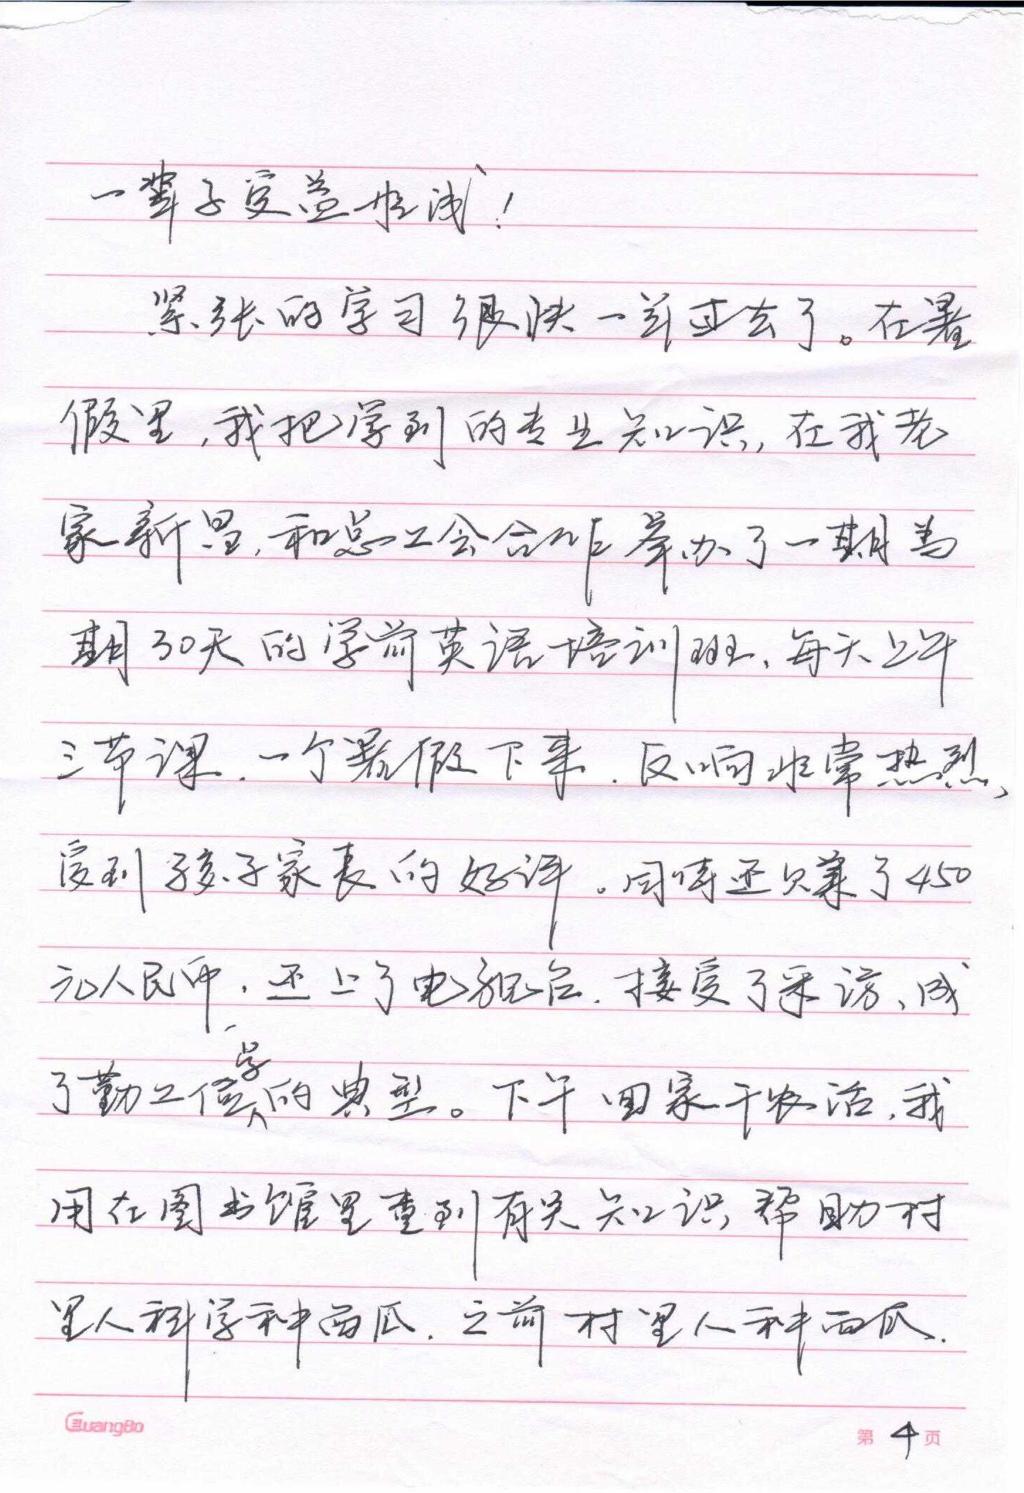 一辈子受益匪浅！
紧张的学习很快一岁过去了。在暑
假里，我把学到的专业知识，在我老
家新昌，和总工会合作举办了一期为
期30天的学前英语培训班、每天上午
三节课，一个暑假下来，反响非常热烈、
受到孩子家长的好评。同时还只赚了450
元人民币，还上了电视台，接受了采访、成
学
了勤工俭的典型。下午回家干农活，我
用在图书馆里查到有关知识帮助村
里人科学种西瓜，之前村里人种西瓜，
GuangBo
第4页